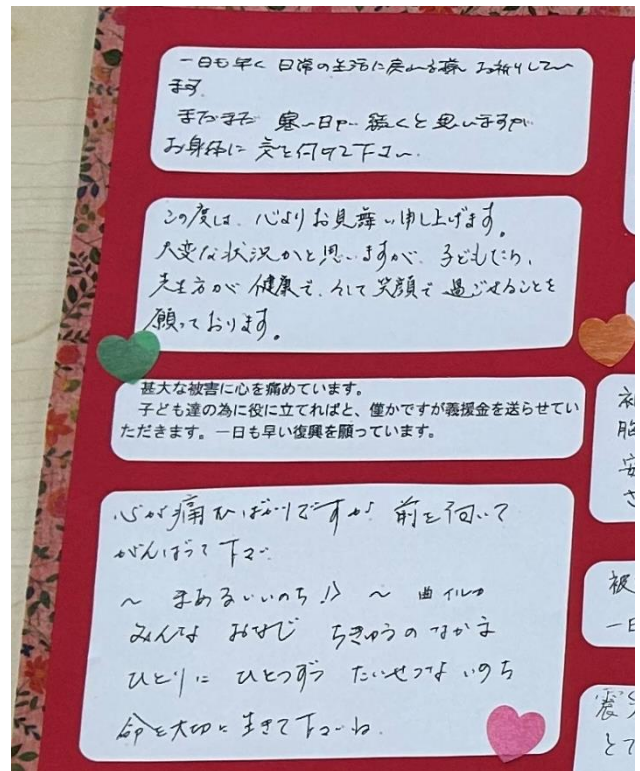 一日も早く 日常の生活に戻れる様 お祈りしてい
ます
まだまだ 寒い日が続くと思いますが
お身体に 気を付けて下さい.
この度は、心よりお見舞い申し上げます。
大変な状況かと思いますが、子どもたち、
先生方が健康で、そして笑顔で過ごせることを
願っております。
甚大な被害に心を痛めています。
子ども達の為に役に立てればと、僅かですが義援金を送らせてい
ただきます。一日も早い復興を願っています。
心が痛むばかりですが 前を向いて
がんばって下さい
～ まあるいいのち ～ 曲イルカ
みんな おなじ ちきゅうの なかま
ひとりに ひとつずつ たいせつな いのち
命を大切に生きて下さいね.
被
一日
震災
とて